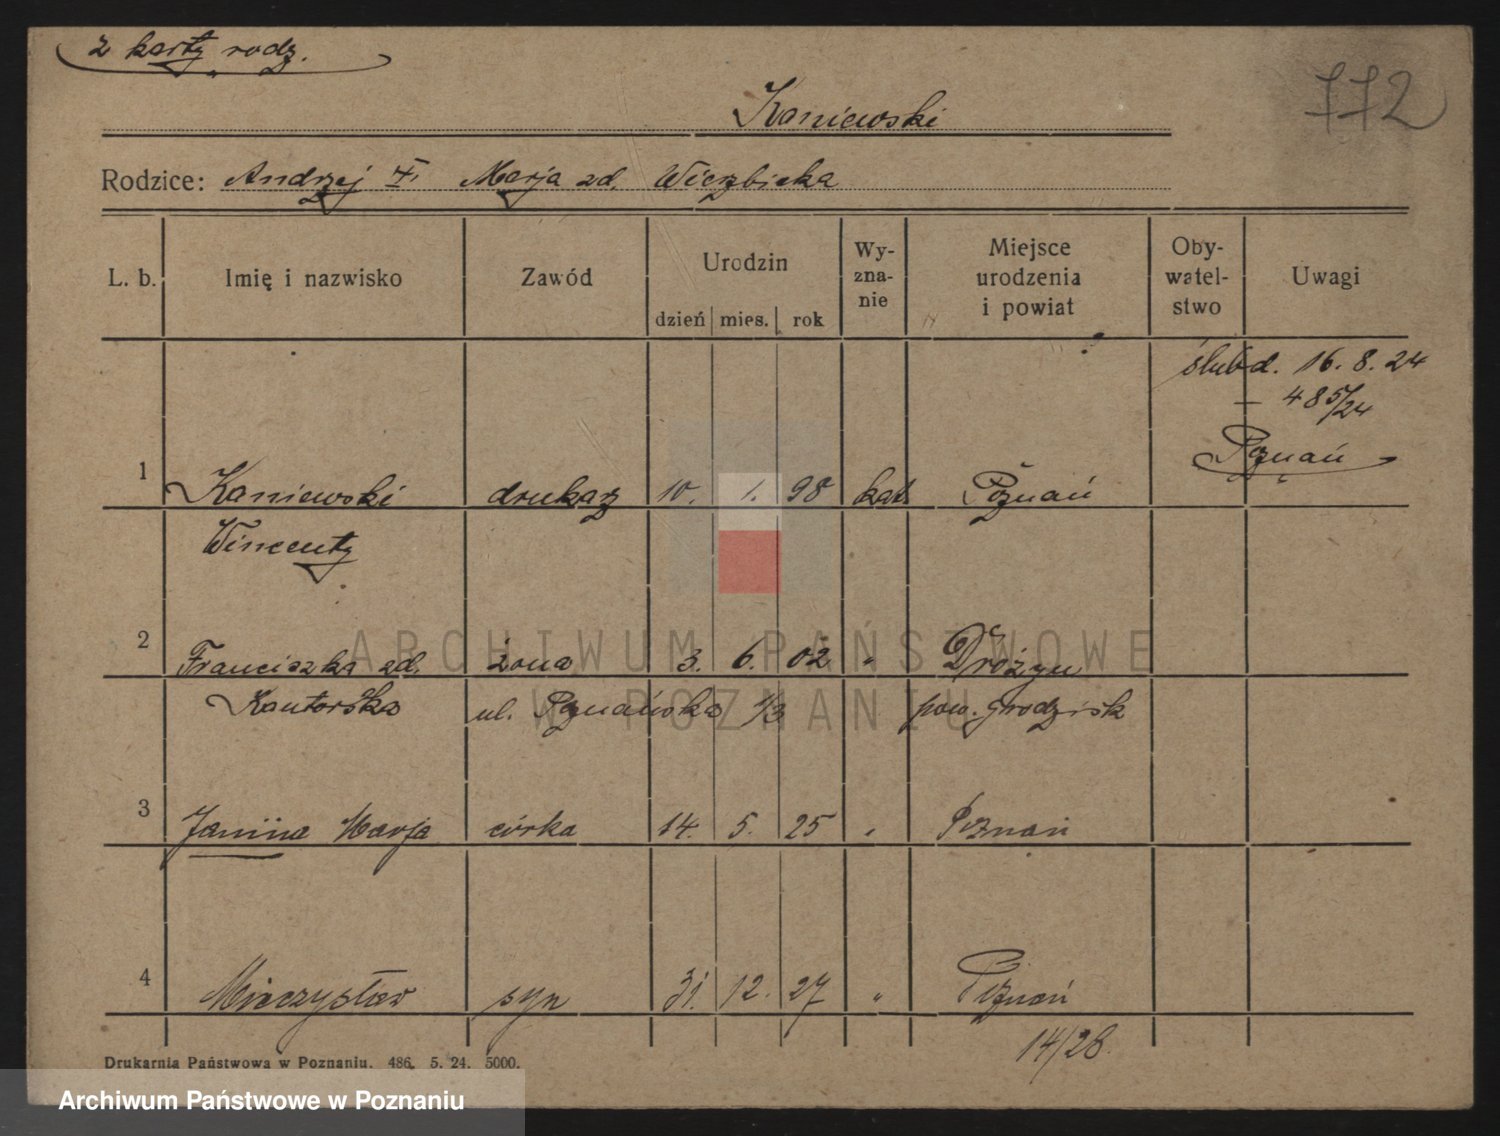 z karty rodz.
772
Kaniewski
Rodzice: Andrzej Marja zd. Wierzbicka
L. b. Imię i nazwisko Zawód Urodzin dzień mies. rok Wy-zna-nie Miejsce urodzenia i powiat Oby-watel-stwo Uwagi
ślub d. 16. 8. 24
— 485/24
Poznań
1 Kaniewski drukarz 10. 1. 98 kat Poznań
Wincenty
2 Franciszka zd. żona 3. 6. 02 " Drożyn
Kantorska ul. Poznańska 1/3 pow. grodzisk
3 Janina Marja córka 14. 5. 25 " Poznań
4 Mieczysław syn 31. 12. 27 " Poznań
14/28.
Drukarnia Państwowa w Poznaniu. 486. 5. 24. 5000.
ARCHIWUM PAŃSTWOWE
W POZNANIU
Archiwum Państwowe w Poznaniu